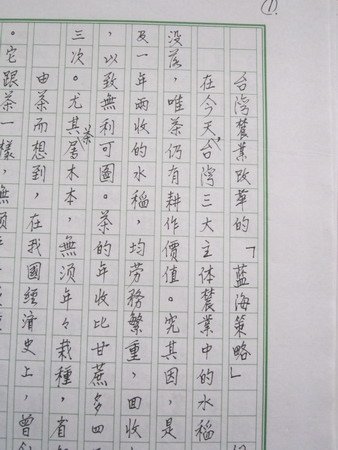 (1).
台灣農業改革的「藍海策略」
在今天，台灣三大主体農業中的水稻
没落，唯茶仍有耕作價值。究其因，是
及一年兩收的水稻，均劳務繁重，回收
，以致無利可圖。茶的年收比甘蔗多四
三次。尤其茶屬木本，無须年々栽種，省
由茶而想到，在我國經濟史上，曾
。它跟茶一樣，無須